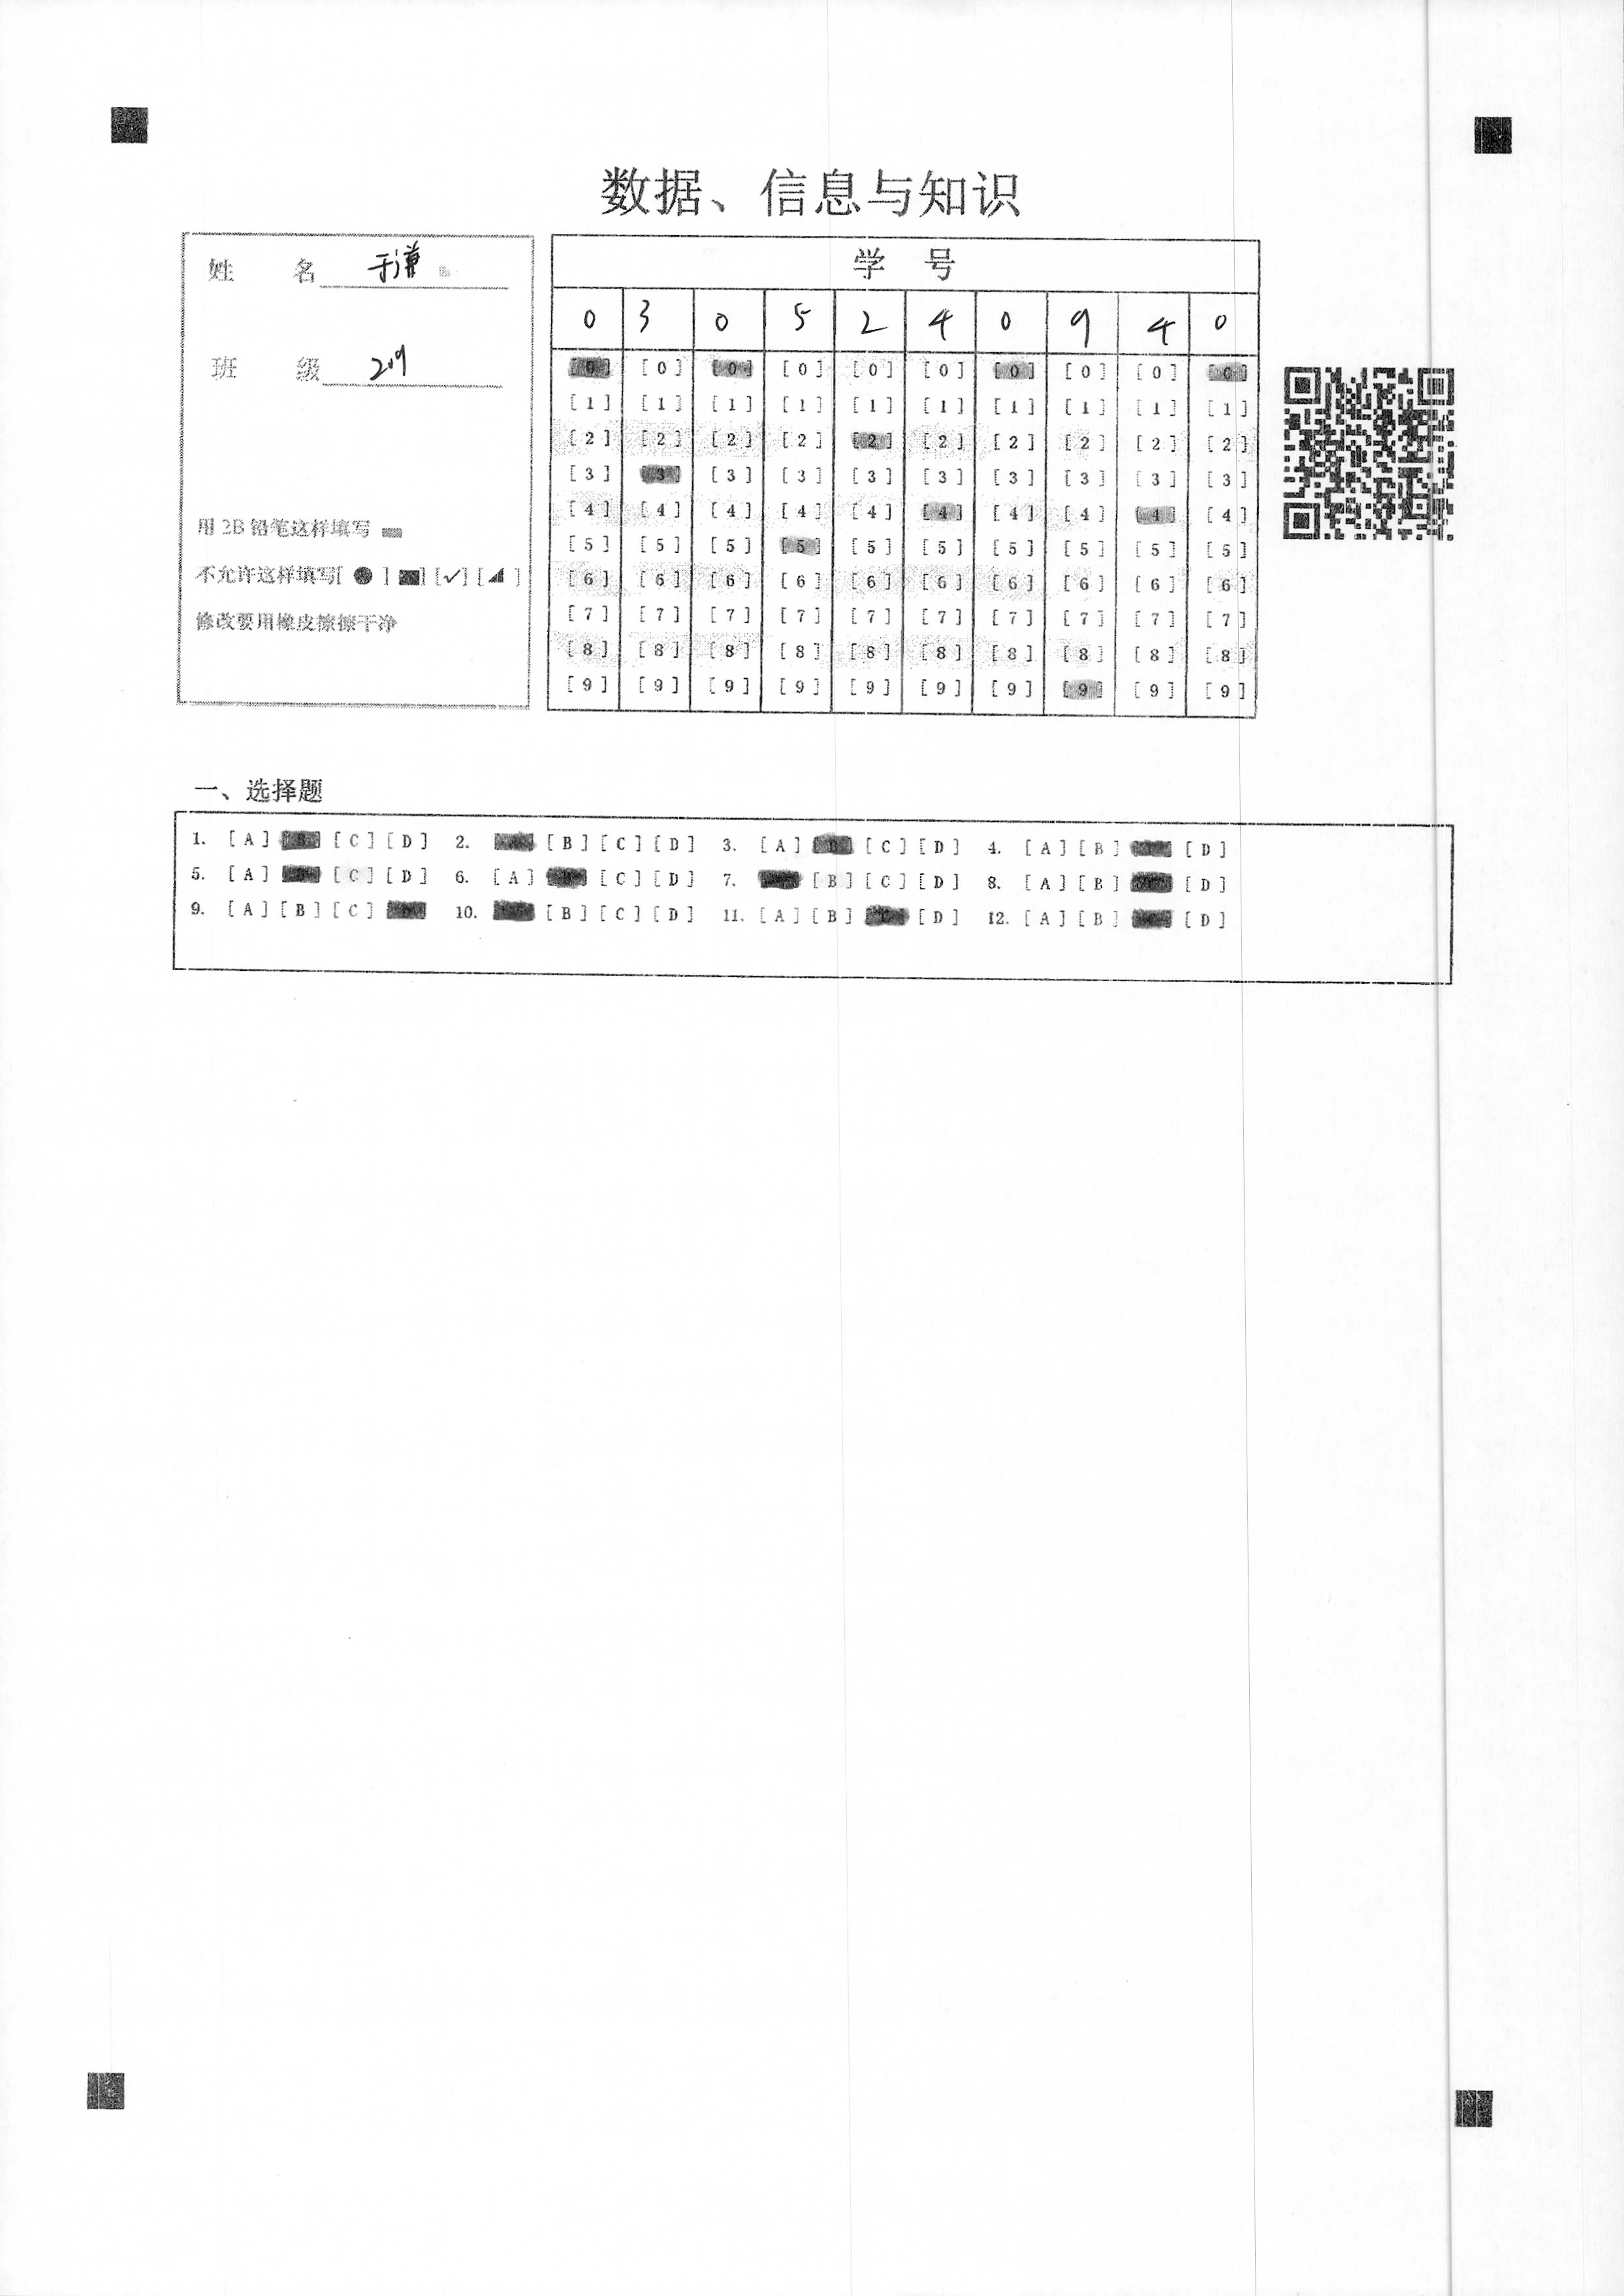 数据、信息与知识
姓 名 于谦
班 级 219
用 2B 铅笔这样填写
不允许这样填写[ ● ] ■] [✓] [◢ ]
修改要用橡皮擦擦干净
学 号
0 3 0 5 2 4 0 9 4 0
[0] [0] [0] [0] [0] [0] [0] [0] [0] [0]
[1] [1] [1] [1] [1] [1] [1] [1] [1] [1]
[2] [2] [2] [2] [2] [2] [2] [2] [2] [2]
[3] [3] [3] [3] [3] [3] [3] [3] [3] [3]
[4] [4] [4] [4] [4] [4] [4] [4] [4] [4]
[5] [5] [5] [5] [5] [5] [5] [5] [5] [5]
[6] [6] [6] [6] [6] [6] [6] [6] [6] [6]
[7] [7] [7] [7] [7] [7] [7] [7] [7] [7]
[8] [8] [8] [8] [8] [8] [8] [8] [8] [8]
[9] [9] [9] [9] [9] [9] [9] [9] [9] [9]
一、选择题
1. [A] [B] [C] [D] 2. [B] [C] [D] 3. [A] [B] [C] [D] 4. [A] [B] [D]
5. [A] [C] [D] 6. [A] [C] [D] 7. [B] [C] [D] 8. [A] [B] [D]
9. [A] [B] [C] 10. [B] [C] [D] 11. [A] [B] [D] 12. [A] [B] [D]